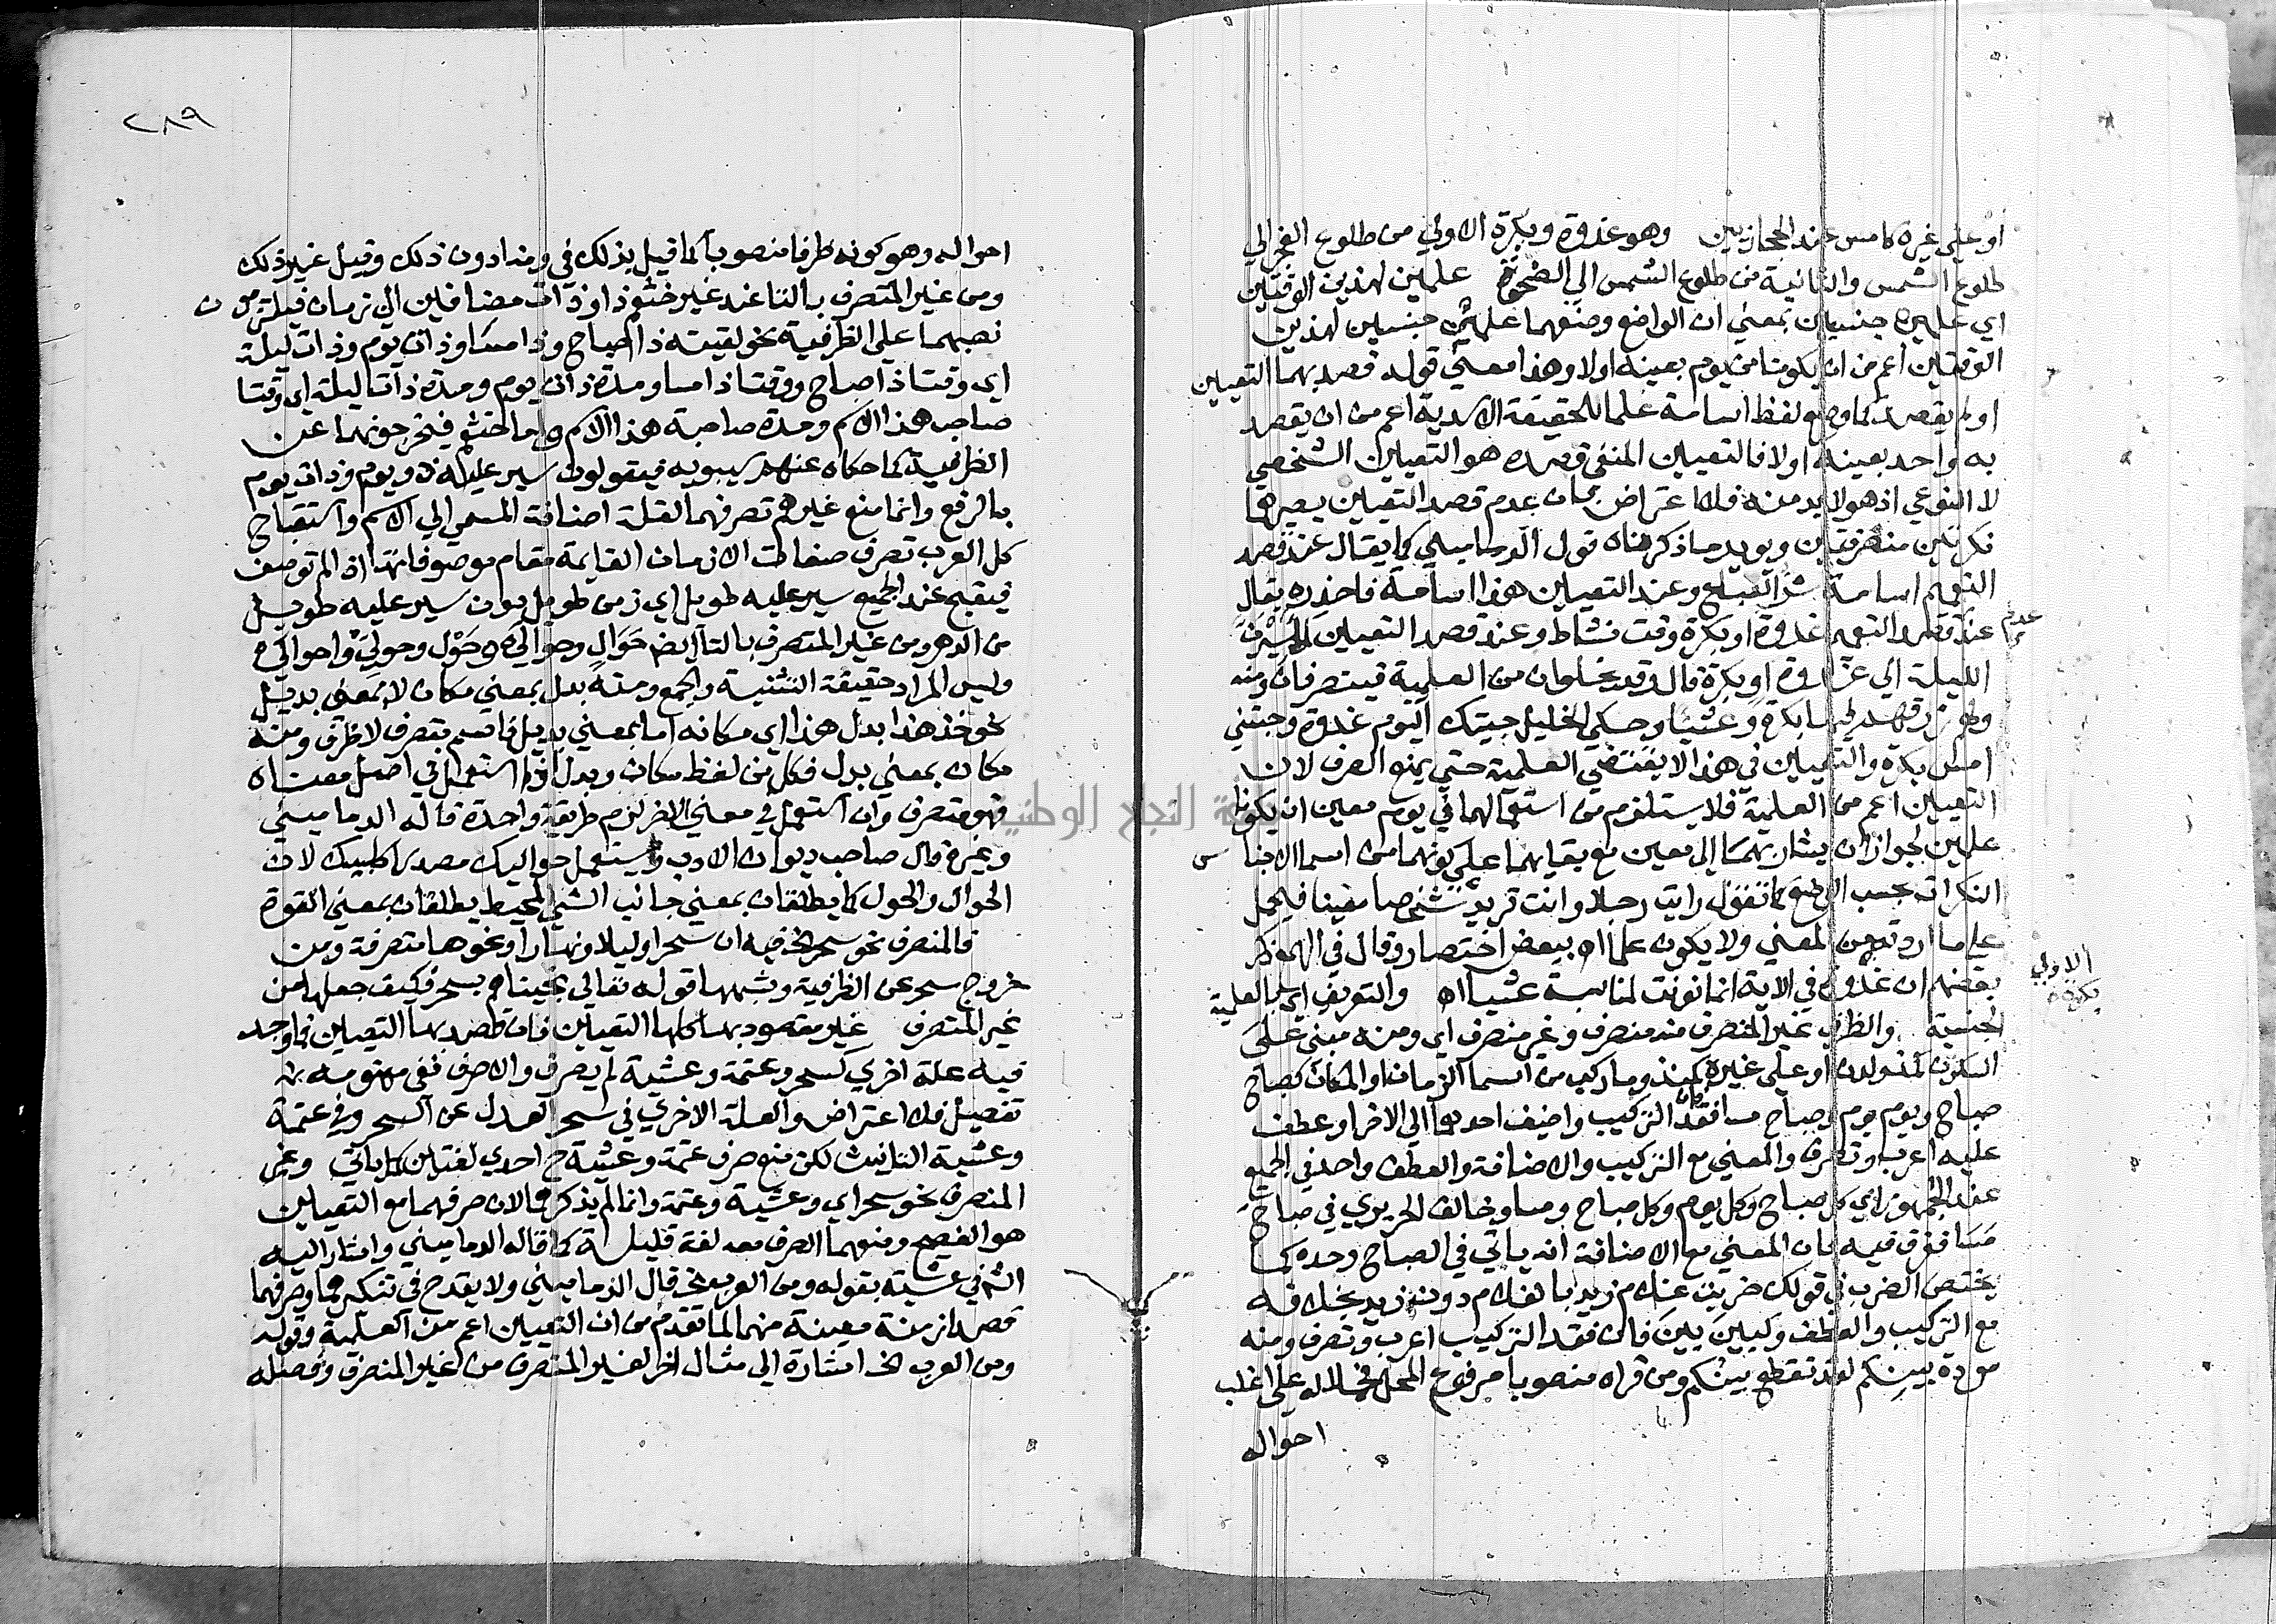 او علي غيره كامس عند الحجازيين وهو غدوة وبكرة الاولي من طلوع الفجر الي
طلوع الشمس والثانية من طلوع الشمس الي الضحوة علمين لهذين الوقتين
اي علميه جنسيين بمعني ان الواضع وضعهما علمين جنسيين لهذين
الوقتين اعم من ان يكونا من يوم بعينه اولا وهذا معني قوله قصد بهما التعيين
او لم يقصد كما وضع لفظ اسامة علما للحقيقة الاسدية اعم من ان يقصد
به واحد بعينه اولا فالتعيين المنفي قصده هو التعيين الشخصي
لا النوعي اذ هو لا بد منه فلا اعتراض بان عدم قصد التعيين يصيرهما
نكرتين منصرفتين ويويد ما ذكرناه قول الدماميني كما يقال عند قصد
التعميم اسامة شر السباع وعند التعيين هذا اسامة فاحذره يقال
عند قصد التعميم غدوة او بكرة وقت نشاط وعند قصد التعيين لاسيرن
عدم
الليلة الي غدوة او بكرة قال وقد يخلوان من العلمية فيتصرفان ومنه
ولهم رزقهم فيها بكرة وعشيا وحكي الخليل جيتك اليوم غدوة وجيتني
امس بكرة والتعيين في هذا لا يقتضي العلمية حتي يمنع الصرف لان
التعيين اعم من العلمية فلا يستلزم من استعمالهما في يوم معين ان يكونا
علمين لجواز ان يشار بهما الي معين مع بقايهما علي كونهما من اسما الاجناس
النكرات بحسب الوضع كما تقول رايت رجلا وانت تريد شخصا معينا فيحمل
علي ما اردته من المعني ولا يكون علما اه ببعض اختصار وقال في الهمع ذكر
بعضهم ان غدوة في الاية انما نونت لمناسبة عشيا اه والتعريف اي بالعلمية
الاولي
بكرة
الجنسية والظرف غير المتصرف منه منصرف وغير منصرف اي ومنه مبني علي
السكون كمذ ولدن او علي غيره كمنذ وما ركب من اسما الزمان او المكان كصباح
صباح ويوم يوم وصباح مسا فان فقد التركيب واضيف احدهما الي الاخر او عطف
عليه اعرب وتصرف والمعني مع التركيب والاضافة والعطف واحد في الجميع
عند الجمهور اي كل صباح وكل يوم وكل صباح ومسا وخالف الحريري في صباح
مسا ففرق فيه بان المعني مع الاضافة انه ياتي في الصباح وحده كما
يختص الضرب في قولك ضربت غلام زيد بالغلام دون زيد بخلافه
مع التركيب والعطف وكبين بين فان فقد التركيب اعرب وتصرف ومنه
مودة بينكم لقد تقطع بينكم ومن قراه منصوبا مرفوع المحل فحملا له علي اغلب
احواله
٢٨٩
احواله وهو كونه ظرفا منصوبا كما قيل بذلك في ومنا دون ذلك وقيل غير ذلك
ومن غير المتصرف بالتا عند غير خثعم ذا وذات مضافين الي زمان فيلتزمون
نصبهما علي الظرفية نحو لقيته ذا صباح وذا مسا وذات يوم وذات ليلة
اي وقتا ذا صباح ووقتا ذا مسا ومدة ذات يوم ومدة ذات ليلة اي وقتا
صاحب هذا الاسم ومدة صاحبة هذا الاسم واما خثعم فتخرجونهما عن
الظرفية كما حكاه عنهم سيبويه فيقولون سير عليه ذو يوم وذات يوم
بالرفع وانما منع غيرهم تصرفهما لقلة اضافة المسمي الي الاسم واستقباح
كل العرب تصرف صفات الازمان القايمة مقام موصوفاتها اذا لم توصف
فيقبح عند الجميع سير عليه طويل اي زمن طويل بدون سير عليه طويل
من الدهر ومن غير المتصرف بالتا ايضا حوال وحوالي وحول وحولي واحوالي
وليس المراد حقيقة التثنية والجمع ومنه بدل بمعني مكان لا بمعني بديل
نحو خذ هذا بدل هذا اي مكانه اما بمعني بديل فاسم متصرف لا ظرف ومنه
مكان بمعني بدل فكل من لفظ مكان وبدل اذا استعمل في اصل معناه
فهو متصرف وان استعمل في معني الاخر لزم طريقة واحدة قاله الدماميني
وغيره قال صاحب ديوان الادب ويستعمل حواليك مصدرا كلبيك لان
الحوال والحول كما يطلقان بمعني جانب الشي المحيط يطلقان بمعني القوة
فالمنصرف نحو سحر الخ فيه ان سحرا وليلا ونهارا ونحوها متصرفة ومن
خروج سحر عن الظرفية وشبهها قوله تعالي نجيناهم بسحر فكيف جعلها من
غير المتصرف غير مقصود بها كلها التعيين فان قصد بها التعيين فما وجد
فيه علة اخري كسحر وعتمة وعشية لم يصرف والا صرف ففي مفهومه
تفصيل فلا اعتراض والعلة الاخري في سحر العدل عن السحر وفي عتمة
وعشية التانيث لكن منع صرف عتمة وعشية في احدي لغتين كما ياتي وغير
المنصرف نحو سحر اي وعشية وعتمة وانما لم يذكرهما لان صرفهما مع التعيين
هو الفصيح ومنعهما الصرف معه لغة قليلة كما قاله الدماميني واشار اليه
الش في عشية بقوله ومن العرب الخ قال الدماميني ولا يقدح في تنكيرهما وصرفهما
قصد ازمنة معينة منهما لما تقدم من ان التعيين اعم من العلمية وقوله
ومن العرب الخ اشارة الي مثال اخر لغير المتصرف من غير المنصرف وفصله
النجاح الوطنية